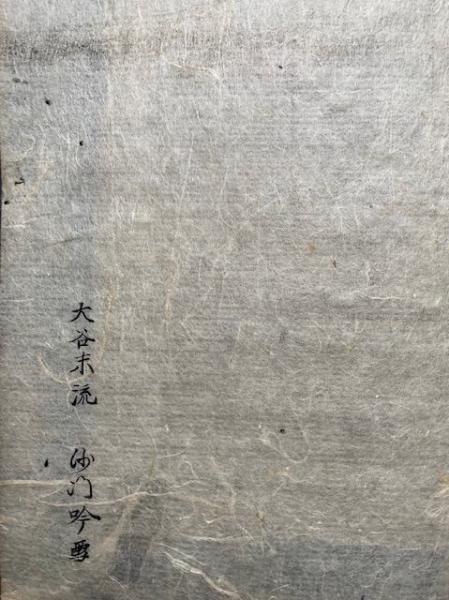 大谷末流　沙門吟雪